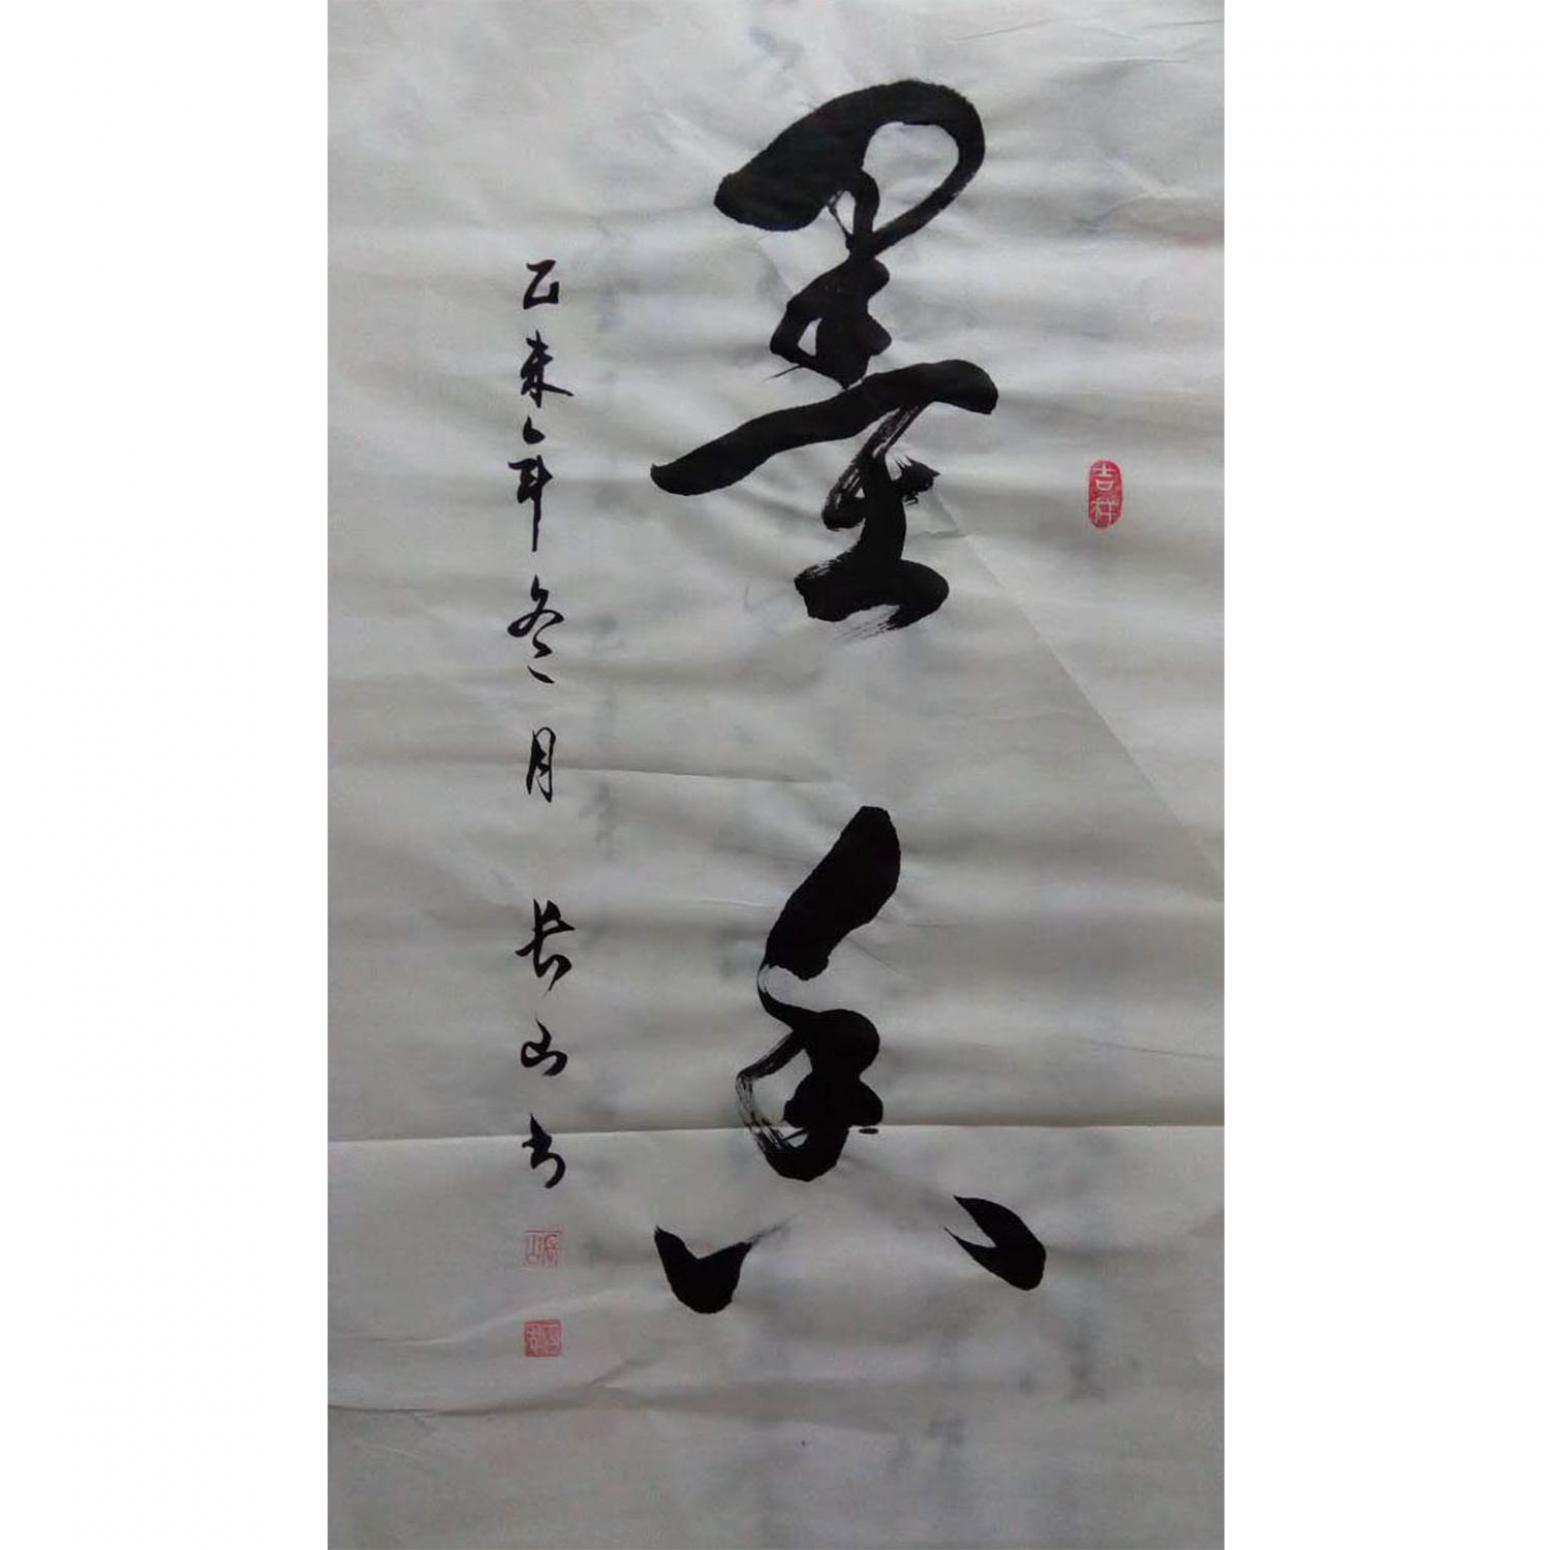 吉祥
墨香
乙未年冬月 长山书